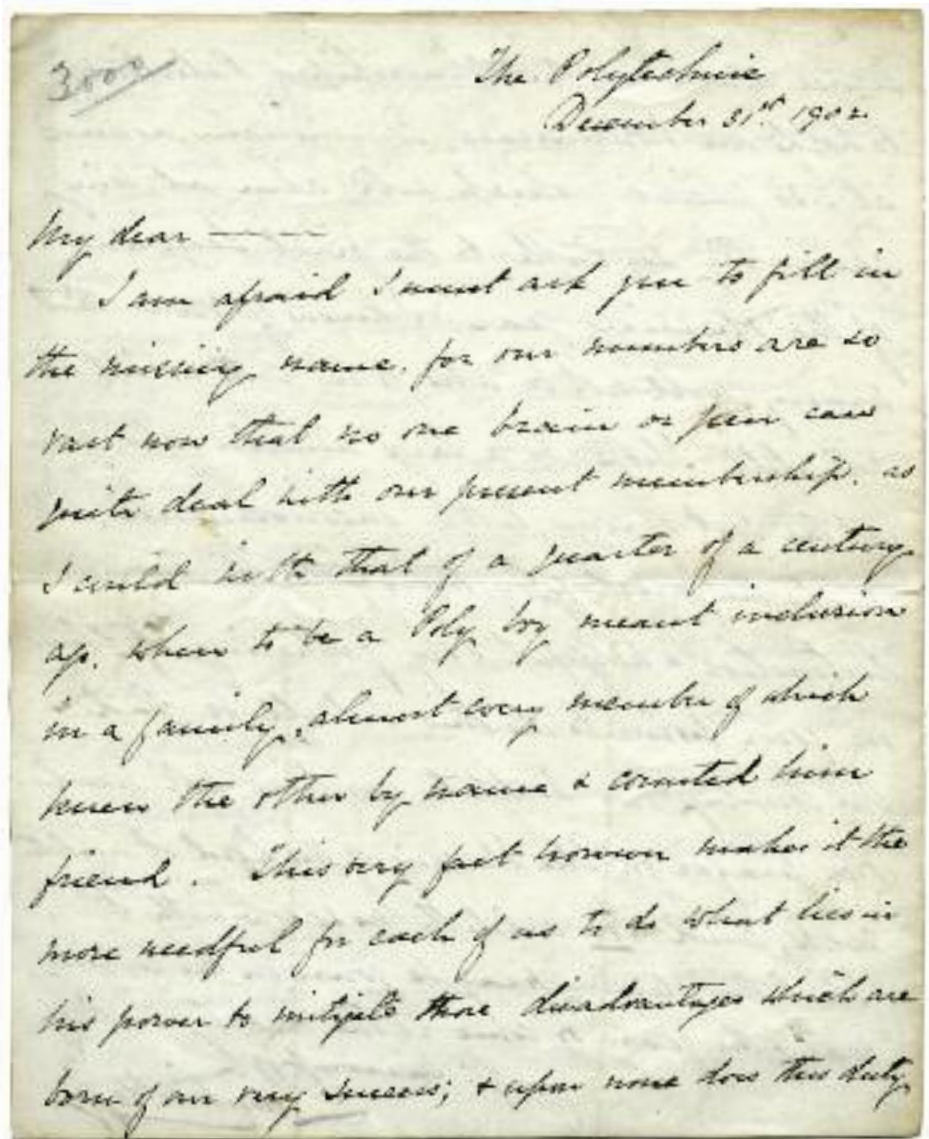 3000
The Polytechnic
December 31st 1902
My dear ———
I am afraid I must ask you to fill in
the missing name. for our numbers are so
vast now that no one brain or pen can
quite deal with our present membership. as
I could with that of a quarter of a century
ago. when to be a Poly boy meant inclusion
in a family, almost every member of which
knew the other by name & counted him
friend. This very fact however makes it the
more needful for each of us to do what lies in
his power to mitigate those disadvantages which are
born of our very success; & upon none does this duty